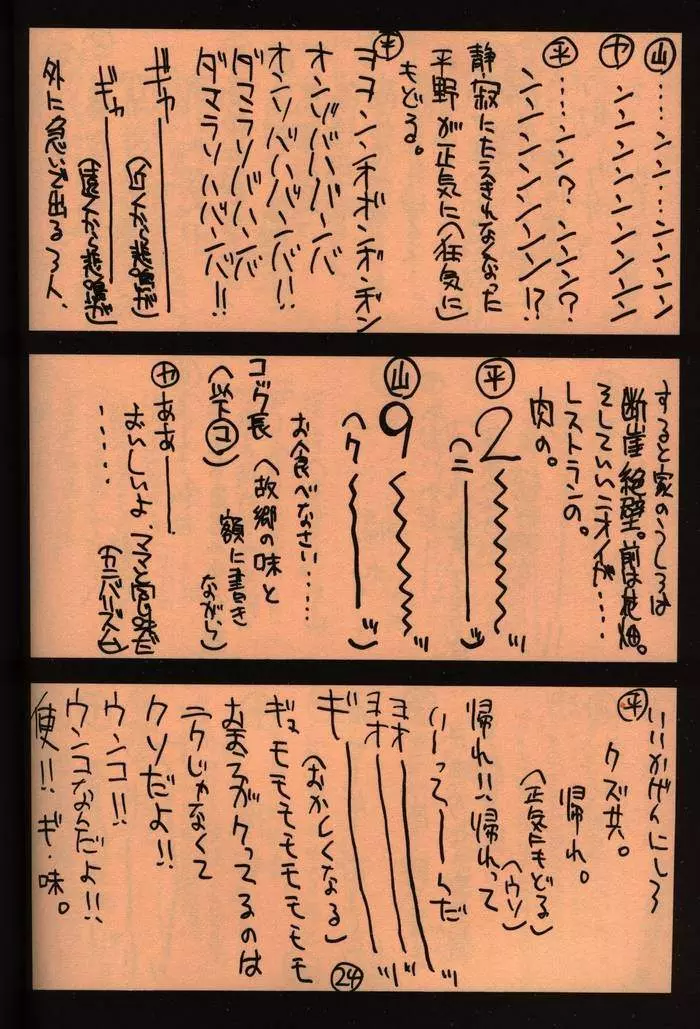 ㊤…ンン…ンンンン
ヤ ンンンンンンンン
平…ンン？ンンン？
ンンンンンンンン！？
静寂にたえきれなくなった
平野が正気に（狂気に）
もどる。
平 ヨヨンンオボンギンギン
オンゾバババーバ
オンソバババーンバ！！
ダマラソバババーンバ
ダマラソハババーンバ！！
ギャ――――
（近くから悲鳴が）
ギャ――――
（遠くから悲鳴が）
外に急いで出る3人、
すると家のうしろは
断崖絶壁。前は花畑。
そしていいニオイが‥‥
レストランの。
肉の。
平 2
（ニ――――ッ）
山 9
（ク――――ッ）
お食べなさい……
コック長（故郷の味と
額に書き
ながら）
（以下コ）
ヤ ああ――
おいしいよ、ママと宮の味だ
……（カニバリズム）
平 いいかげんにしろ
クズ共。
帰れ。
（正気にもどる）
（ウソ）
帰れ！！帰れって
い―って――んだ
ヨオ――――ッ
ヨオ――――ッ
ギ――――ッ
（おかしくなる）
ギュモモモモモモモモ
おまえがクってるのは
ニクじゃなくて
クソだよ！！
ウンコ！！
ウンコなんだよ！！
便！！ギ・味。
24